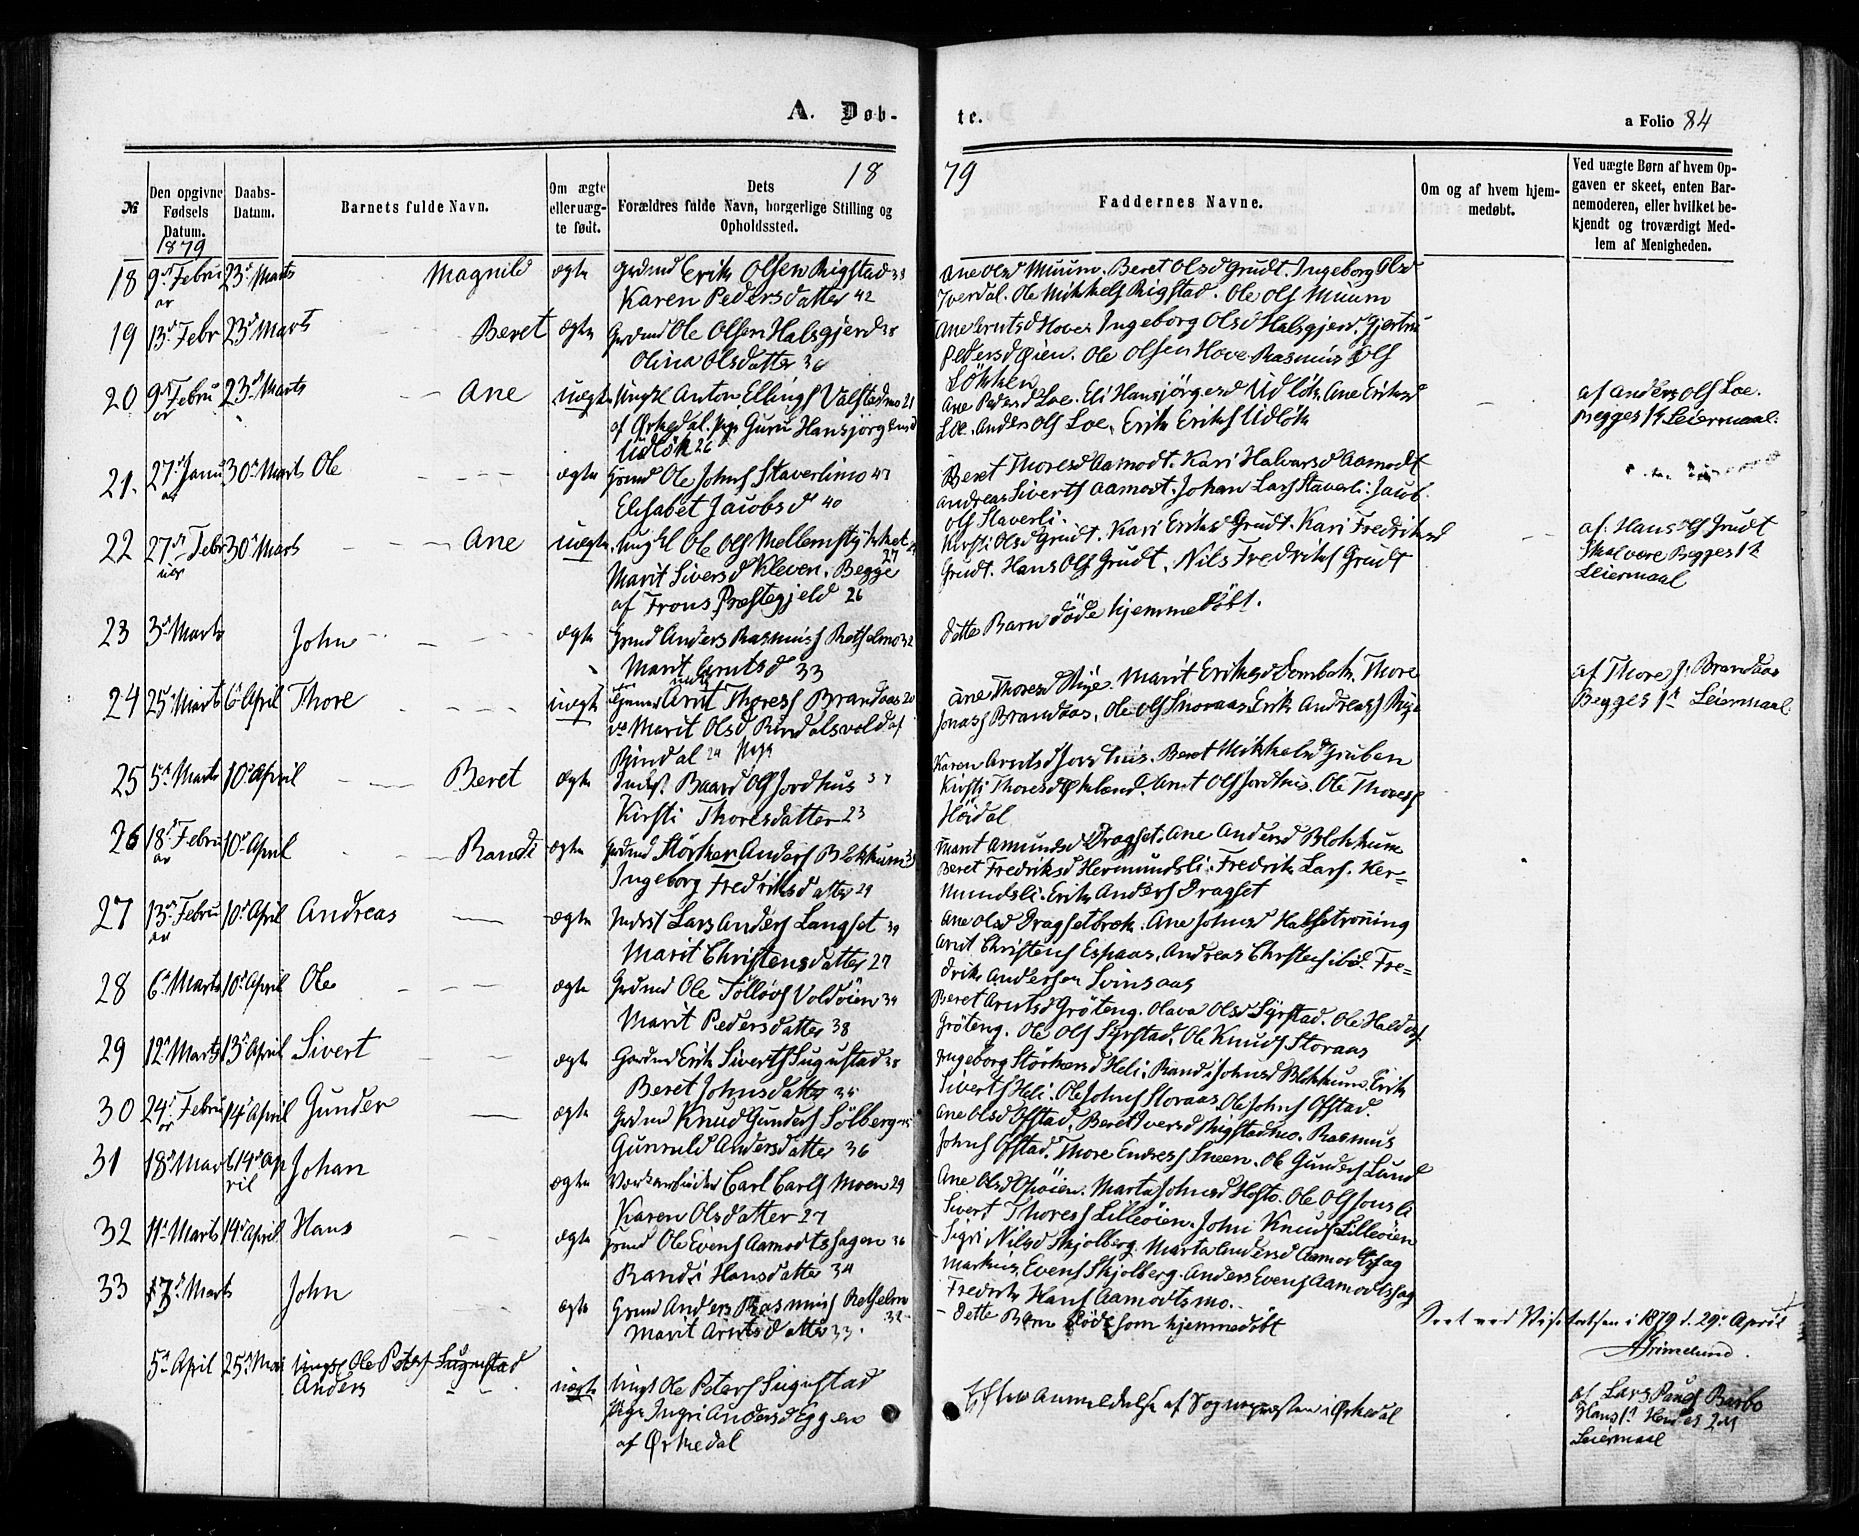 A. Døb-
te.
a Folio 84
18
79
№
Den opgivne Fødsels Datum.
1879
Daabs-Datum.
Barnets fulde Navn.
Om ægte eller uæg-te født.
Dets
Forældres fulde Navn, borgerlige Stilling og
Opholdssted.
Faddernes Navne.
Om og af hvem hjem-
medøbt.
Ved uægte Børn af hvem Op-
gaven er skeet, enten Bar-
nemoderen, eller hvilket be-
kjendt og troværdigt Med-
lem af Menigheden.
18 9d Febru ar 23d Marts Magnild ægte Grdmd Erik Olsen Rigstad 38
Karen Pedersdatter 42
Ane Olsd Muum. Beret Olsd Grudt. Ingeborg Olsd
Iverdal. Ole Mikkels Rigstad. Ole Ols Muum
19 13d Febr 23d Marts Beret ægte Grdmd Ole Olsen Halsgjerd
Olina Olsdatter 36
Ane Arntsd Hove. Ingeborg Olsd Halsgjerd. Gjertru
Pedersd Øien. Ole Olsen Hove. Rasmus Ols
Løkken
20 9d Febru ar 23d Marts Ane uægte Ungkl Anton Ellings Valstadmo 21
af Ørkedal. Pige Guru Hansjørgensd
Udløk 26
Ane Pedersd Loe. Eli Hansjörgesd Udløk. Ane Eriksd
Loe. Anders Ols Loe. Erik Eriks Udløk
af Anders Ols Loe.
Begges 1t Leiermaal.
21. 27d Janu ar 30d Marts Ole ægte Grmd Ole Johns Staverlimo 47
Elisabet Jacobsd 40
Beret Thoresd Aamodt. Kari Halvarsd Aamodt
Andreas Siverts Aamodt. Johan Lars Staverli. Jacob
Ols Staverli.
22 27d Febr uar 30d Marts Ane uægte Ungkl Ole Ols Mellemstykket
27
Marit Siversd Kleven. Begge
af Frons Præstegjeld 26
Kirsti Olsd Grudt. Kari Eriksd Grudt. Kari Fredriksd
Grudt. Hans Ols Grudt. Nils Fredriks Grudt
af Hans Ols Grudt
Skal være Begges 1t
Leiermaal
23 3d Marts John ægte Grmd Anders Rasmus Retselmo 32
Marit Arntsd 33
Dette Barn døde hjemmedøbt.
24 25d Marts 6d April Thore uægt Arnt Thores Brandaas 20
Marit Olsd Rindalsvold af
Rindal 24 Pige
Ane Thoresd Rige. Marit Eriksd Dombæk. Thore
Jonas Brandaas. Ole Ols Snoraas. Erik Andreas Rige
af Thore J. Brandaas
Begges 1t Leiermaal
25 5d Marts 10d April Beret ægte Inds. Baard Ols Jordhus 37
Kirsti Thoresdatter 23
Karen Arntsd Jordhus. Beret Mikkelsd Gruben
Kirsti Thoresd Økland. Arnt Ols Jordhus. Ole Thores
Høidal
26 18d Febru ar 10d April Randi ægte Grdmd Størker Anders Blokkum 35
Ingeborg Fredriksdatter 29
Marit Amundsd Dragset. Ane Andersd Blokkum
Beret Fredriksd Hermundsli. Fredrik Lars. Her-
mundsli. Erik Anders Dragset
27 13d Febru ar 10d April Andreas ægte Inderst Lars Anders Langset 39
Marit Christensdatter 27
Ane Olsd Dragsetbæk. Ane Johnsd Halsetrønning
Arnt Christens Espaas. Andreas Christens ibd. Fre-
drik Andersen Svinsaas
28 6d Marts 10d April Ole ægte Grdmd Ole Tølløvs Voldøien 34
Marit Pedersdatter 38
Beret Arntsd Grøteng. Olava Olsd Syrstad. Ole Haldors
Grøteng. Ole Ols Syrstad. Ole Knuds Storaas
29 12d Marts 13d April Sivert ægte Gardmd Erik Siverts Sugustad 38
Beret Johnsdatter 35
Ingeborg Størkersd Heli. Randi Johnsd Blokkum. Erik
Siverts Heli. Ole Johns Storaas. Ole Johns Ofstad.
30 24d Febru ar 14d April Gunder ægte Grdmd Knud Gunders Sølberg
Gunnuld Andersdatter 36
Ane Olsd Ofstad. Beret Iversd Rigstadmo. Rasmus
Johns Ofstad. Thore Endres Sneen. Ole Gunders Lund
31 18d Mar 14d Ap ril Johan ægte Carl Carls Moen 29
Karen Olsdatter 27
Ane Olsd Opøien. Marta Johnsd Hofto. Ole Ols Jonsli
Sivert Thores Lilleøien. John Knuds Lilleøien
32 11d Marts 14d April Hans ægte Grmd Ole Evens Aamodtshagen 36
Randi Hansdatter 34
Sigri Nilsd Skjølberg. Marta Andersd Aamodtshag
Markus Evens Skjølberg. Anders Evens Aamodtshag
Fredrik Hans Aamodtsmo.
33 3d Marts John ægte Grmd Anders Rasmus Retselmo
32
Marit Arntsdatter 33.
Dette Barn døde som hjemmedøbt
Seet ved Visitatsen i 1879 d. 29d April
AGrimelund.
5d April 25d Mai Ungkl Ole Peters Sugustad
Anders uægte Ungk Ole Peters Sugustad
Pige Ingri Andersd Eggen
af Ørkedal
Efter Anmeldelse af Sognepræsten i Ørkedal
af Lars Pauls Barbo
Hans 1t Hendes 2det
Leiermaal